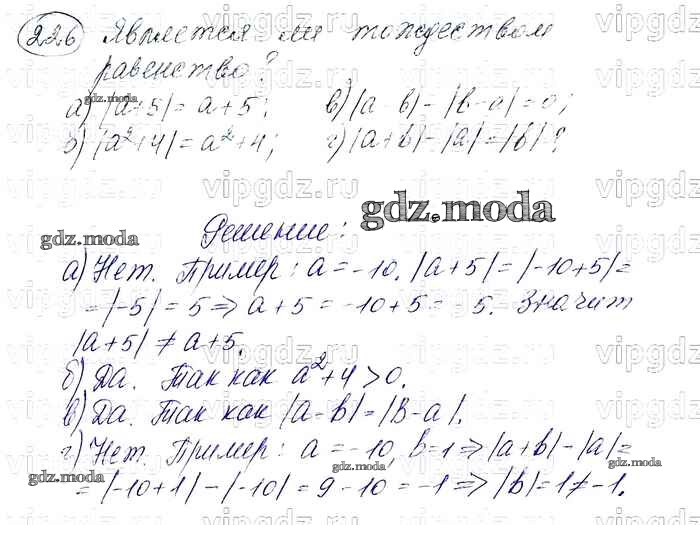 226 Является ли тождеством
равенство?
а) |a+5| = a+5; в) |a-b| - |b-a| = 0;
б) |a²+4| = a²+4; г) |a+b| - |a| = |b|?
Решение:
а) Нет. Пример: a = -10. |a+5| = |-10+5| =
= |-5| = 5 => a+5 = -10+5 = 5. Значит
|a+5| ≠ a+5.
б) Да. Так как a²+4 > 0.
в) Да. Так как |a-b| = |B-a|.
г) Нет. Пример: a = -10, b=1 => |a+b| - |a| =
= |-10+1| - |-10| = 9 - 10 = -1 => |b| = 1 ≠ -1.
gdz.moda
vipgdz.ru